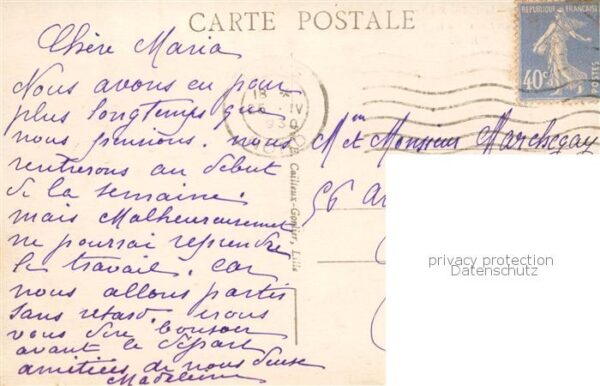 CARTE POSTALE
RÉPUBLIQUE FRANÇAISE
40c
POSTES
Chère Maria
Nous avons eu pour
plus longtemps que
nous pensions. nous
rentrerons au début
de la semaine.
mais Malheureusement
ne pourrai reprendre
le travail. car
nous allons partir
sans retard. nous
vous dire bonsoir
avant le départ
amitiées de nous deux
Madeleine
18
25 IV
Mme et Monsieur Marchegay
56
Cailleux-Gontier, Lille
privacy protection
Datenschutz